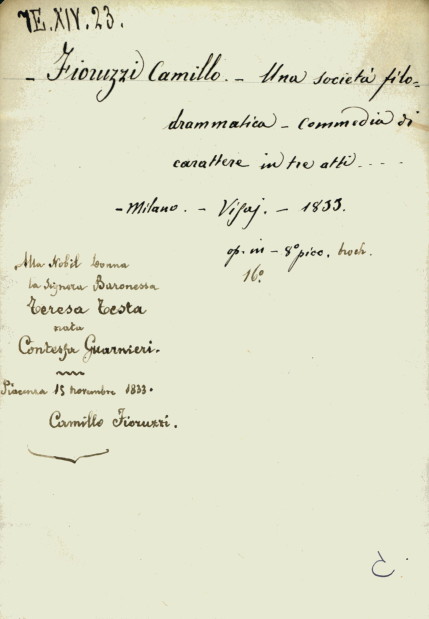 7E.XIV.23.
- Fioruzzi Camillo. - Una società filo=
drammatica - Commedia di
carattere in tre atti ....
- Milano. - Visaj. - 1833.
op. in - 8º picc. broch.
16º
Alla Nobil Donna
la Signora Baronessa
Teresa Testa
nata
Contessa Guarnieri.
Piacenza 15 novembre 1833.
Camillo Fioruzzi.